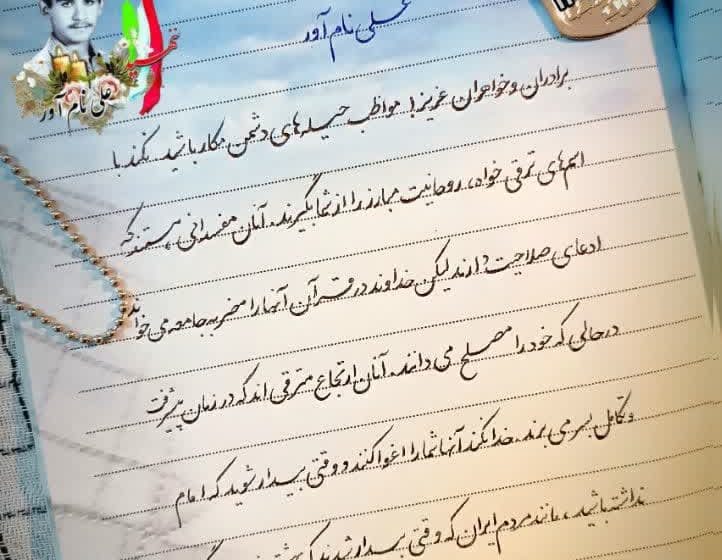 علی نام آور
شهید
علی نام آور
برادران و خواهران عزیز! مواظب حیله‌های دشمن مکار باشید نکند با
اسم‌های ترقی خواه، روحانیت مبارز را از شما بگیرند. آنان مفسدانی هستند که
ادعای صلاحیت دارند لیکن خداوند در قرآن آنها را مضر به جامعه می خواند
در حالی که خود را مصلح می دانند. آنان ارتجاع مترقی اند که در زمان پیشرفت
و تکامل بسر می برند. خدا نکند آنها شما را اغوا کنند و وقتی بیدار شوید که امام
نداشته باشید، مانند مردم ایران که وقتی بیدار شدند که بهشتی